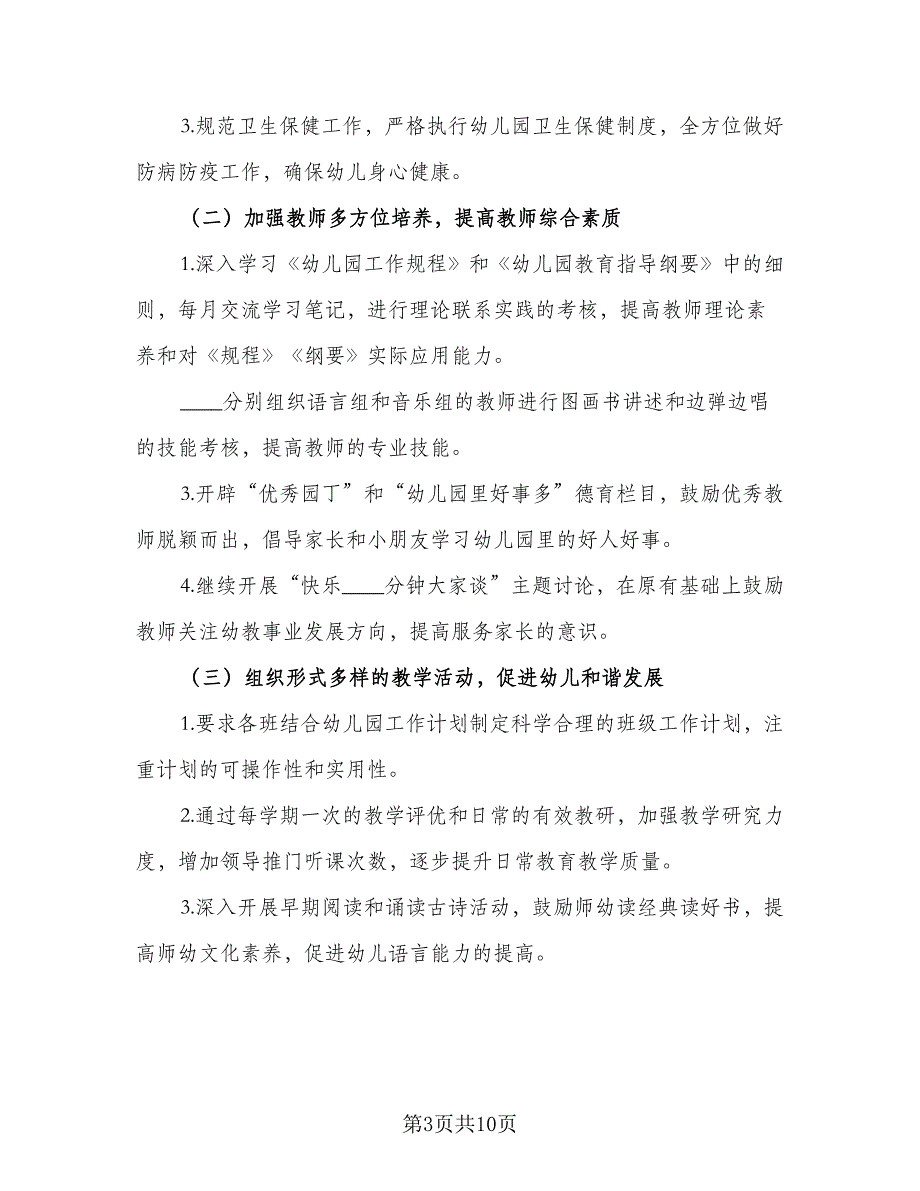 3.规范卫生保健工作，严格执行幼儿园卫生保健制度，全方位做好
防病防疫工作，确保幼儿身心健康。
（二）加强教师多方位培养，提高教师综合素质
1.深入学习《幼儿园工作规程》和《幼儿园教育指导纲要》中的细
则，每月交流学习笔记，进行理论联系实践的考核，提高教师理论素
养和对《规程》《纲要》实际应用能力。
____分别组织语言组和音乐组的教师进行图画书讲述和边弹边唱
的技能考核，提高教师的专业技能。
3.开辟“优秀园丁”和“幼儿园里好事多”德育栏目，鼓励优秀教
师脱颖而出，倡导家长和小朋友学习幼儿园里的好人好事。
4.继续开展“快乐____分钟大家谈”主题讨论，在原有基础上鼓励
教师关注幼教事业发展方向，提高服务家长的意识。
（三）组织形式多样的教学活动，促进幼儿和谐发展
1.要求各班结合幼儿园工作计划制定科学合理的班级工作计划，注
重计划的可操作性和实用性。
2.通过每学期一次的教学评优和日常的有效教研，加强教学研究力
度，增加领导推门听课次数，逐步提升日常教育教学质量。
3.深入开展早期阅读和诵读古诗活动，鼓励师幼读经典读好书，提
高师幼文化素养，促进幼儿语言能力的提高。
第3页共10页